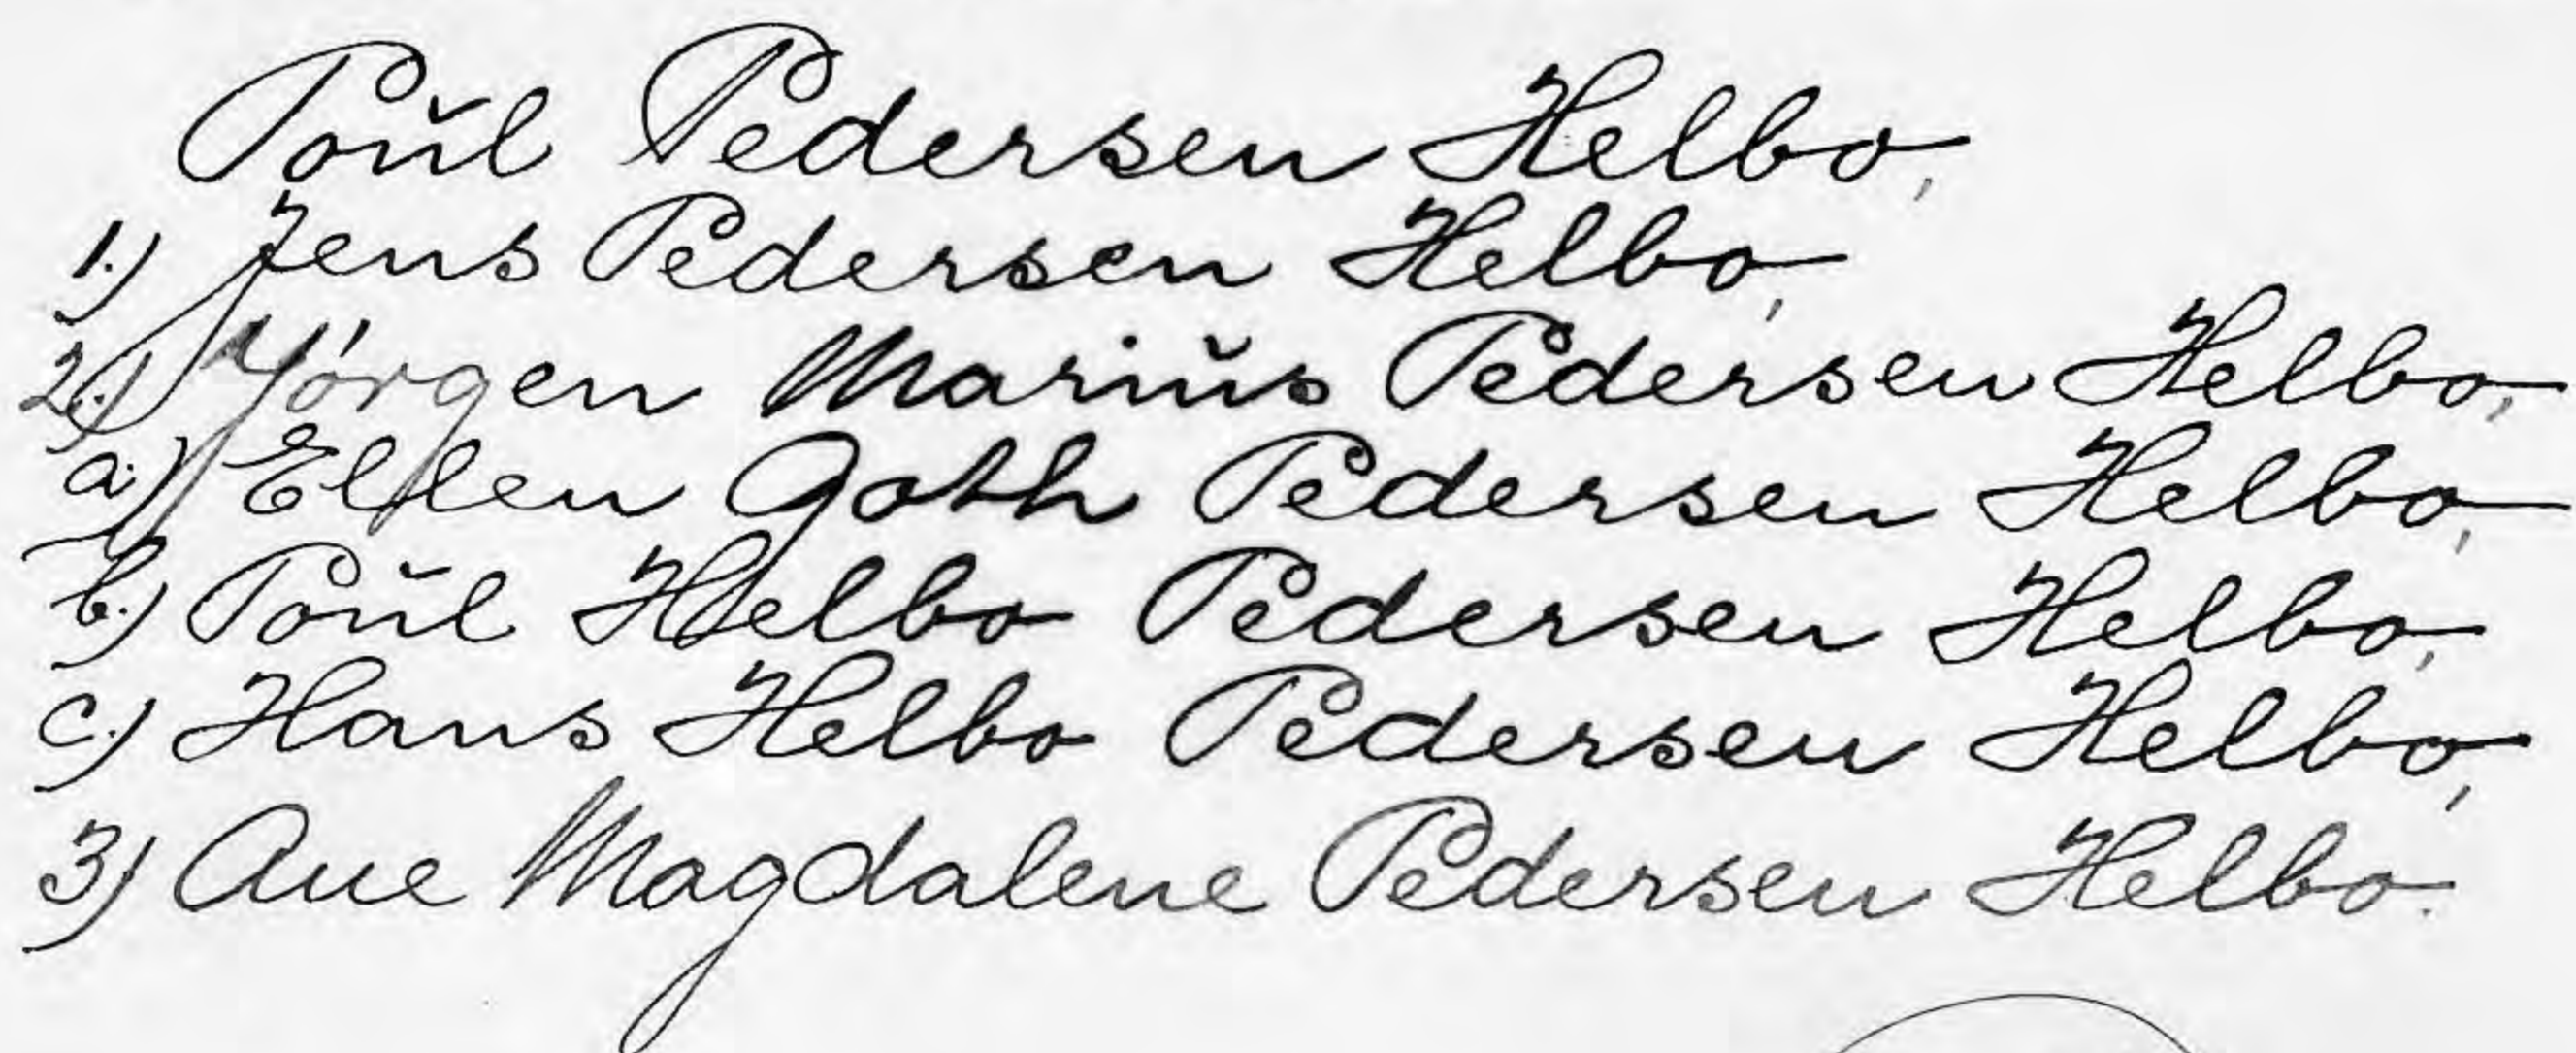 Poŭl Pedersen Helbo,
1.) Jens Pedersen Helbo,
2.) Jórgen Mariŭs Pedersen Helbo,
a.) Ellen Goth Pedersen Helbo,
b.) Poŭl Helbo Pedersen Helbo,
c.) Hans Helbo Pedersen Helbo,
3) Ane Magdalene Pedersen Helbo.